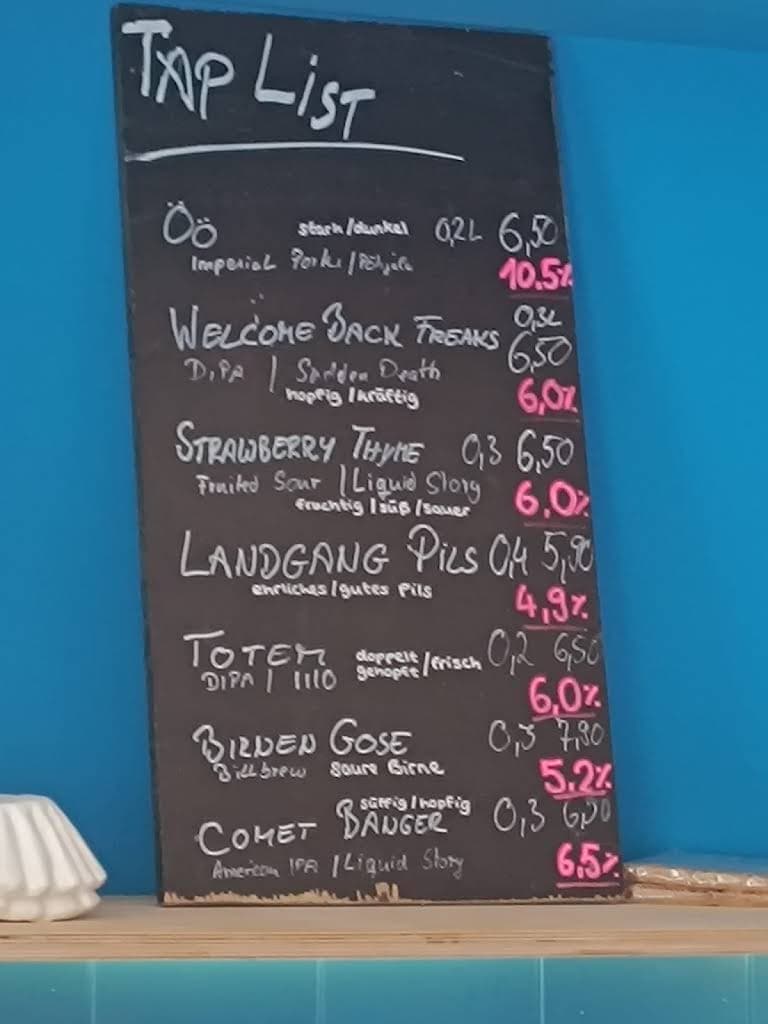 TAP LIST
Öö stark/dunkel 0,2L 6,50
Imperial Porter/Põhjala 10.5%
WELCOME BACK FREAKS 0,3L 6,50
DIPA | Sudden Death
hopfig/kräftig 6,0%
STRAWBERRY THYME 0,3 6,50
Fruited Sour | Liquid Story
fruchtig/süß/sauer 6,0%
LANDGANG PILS 0,4 5,90
ehrliches/gutes Pils 4,9%
TOTEM doppelt gehopft/frisch 0,2 6,50
DIPA | 1110 6,0%
BIRNEN GOSE 0,3 7,90
Billbrew saure Birne 5.2%
süffig/hopfig
COMET BANGER 0,3 6,50
American IPA / Liquid Story 6,5%